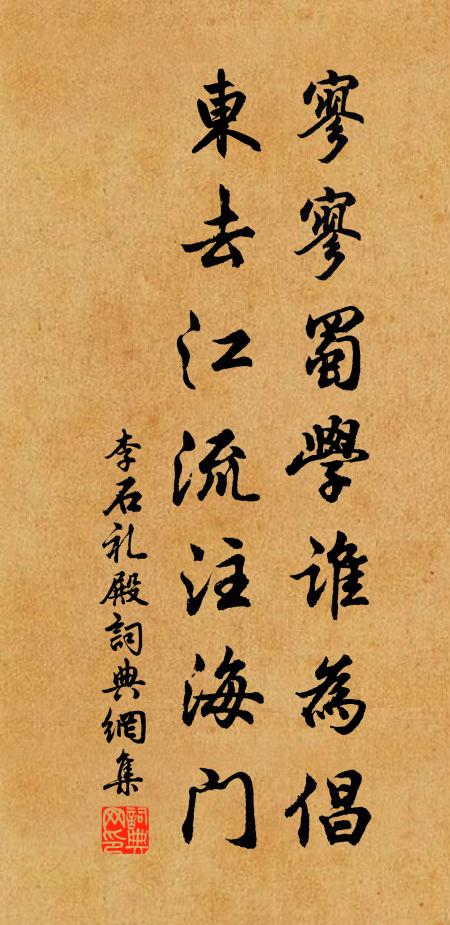 寥寥蜀學誰為倡
東去江流注海門
李石礼殿詞典網集
詞典網印